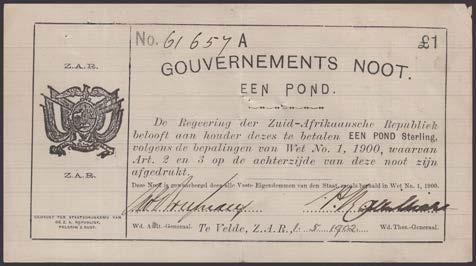 No. 61657 A £1
GOUVERNEMENTS NOOT.
EEN POND.
Z.A.R.
De Regeering der Zuid-Afrikaansche Republiek
belooft aan houder dezes te betalen EEN POND Sterling,
volgens de bepalingen van Wet No. 1, 1900, waarvan
Art. 2 en 3 op de achterzijde van deze noot zijn
afgedrukt.
Z.A.R.
Deze Noot is gewaarborgd door alle Vaste Eigendommen van den Staat, zooals bepaald in Wet No. 1, 1900.
GEDRUKT TER STAATSDRUKKERIJ VAN
DE Z. A. REPUBLIEK,
Wd. Audt.-Generaal. Te Velde, Z.A.R., 1-5-1902 Wd. Thes.-Generaal.